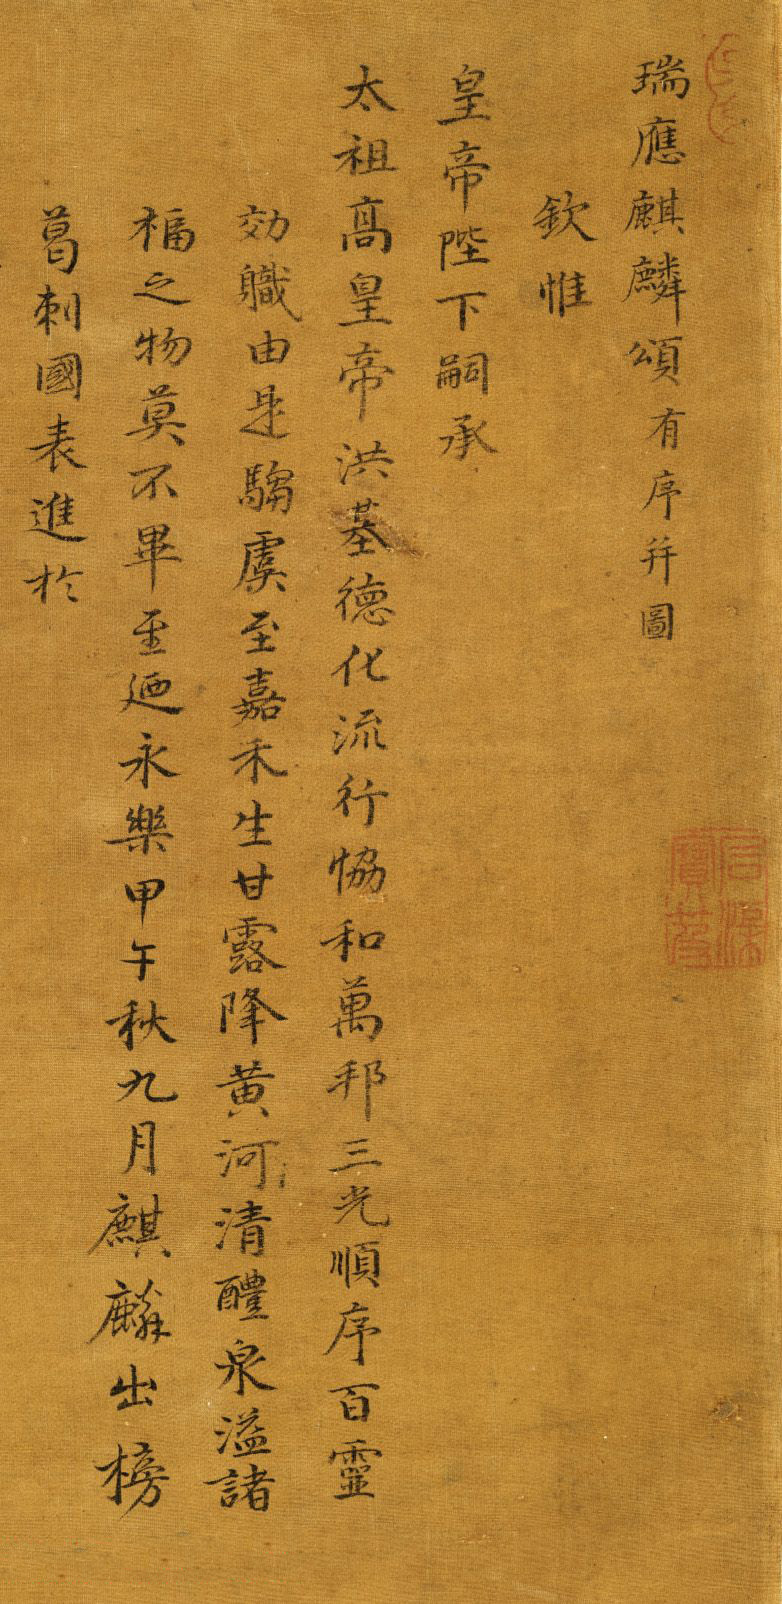 瑞應麒麟頌有序并圖
欽惟
皇帝陛下嗣承
太祖高皇帝洪基德化流行恊和萬邦三光順序百靈
効職由是騶虞至嘉禾生甘露降黄河清醴泉溢諸
福之物莫不畢至廼永樂甲午秋九月麒麟出榜
葛剌國表進於